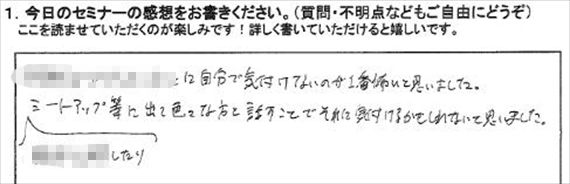 1. 今日のセミナーの感想をお書きください。(質問・不明点などもご自由にどうぞ)
ここを読ませていただくのが楽しみです！詳しく書いていただけると嬉しいです。
に自分で気付けないのが1番怖いと思いました。
ミートアップ等に出て色々な方と話すことでそれに気付けるかもしれないと思いました。
したり